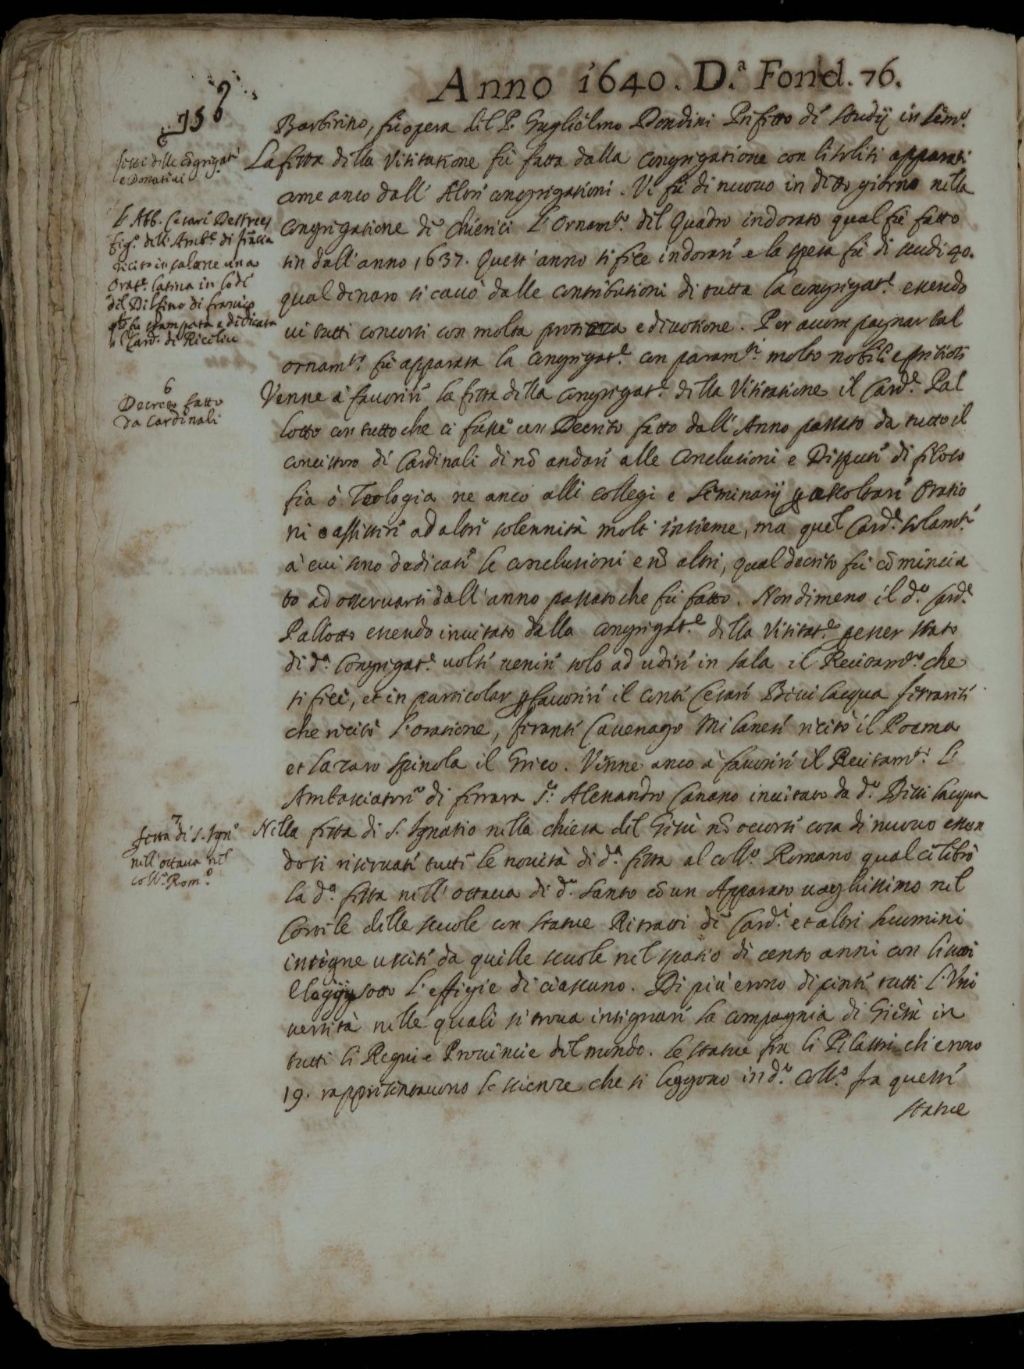 Anno 1640. D.ª Fond. 76.
756
Barbirino, fù opera del P. Guglielmo Dondini Prefetto di studij in sem.º
6
feste delle Congregat.
e Donatini
La festa della Visitatione fù fatta dalla Congregatione con li soliti apparati
come anco dall' Altri congregationi. Vi fù di nuovo in detto giorno nella
L'Abb. Cesare Destrees
fig.º dell'Amb.re di francia
recitò in salone una
Orat.e latina in lode
del Delfino di francia
qual fu stampata e dedicata
al Card. di Riceliu
Congregatione de Chierici l'Ornam.to del Quadro indorato qual fù fatto
sin dall'anno 1637. Quest'anno si fece indorare e la spesa fù di scudi 90.
qual denaro si cavò dalle contributioni di tutta la congregat.e essendo
vi tutti concorsi con molta prontezza e divotione. Per accompagnar tal
ornam.to fù apparata la congregat.e con param.ti molto nobili e pretiosi
6
Decreto fatto
da Cardinali
Venne à favorire la festa della Congregat.e della Visitatione il Card.e Pal
lotto con tutto che ci fusse un Decreto fatto dall'Anno passato da tutto il
concistoro de Cardinali di nō andare alle Conclusioni e Dispute di filoso
fia ò Teologia ne anco alli collegi e Seminarij p ascoltare Oratio
ni o assistere ad altre solennità molti insieme, ma quel Card.e solam.te
à cui sono dedicate le conclusioni e nō altri, qual decreto fù comincia
to ad osservarsi dall'anno passato che fù fatto. Nondimeno il d.º Card.e
Pallotto essendo invitato dalla congregat.e della Visitat.e p esser stato
di d.ª Congregat.e volse venire solo ad udire in sala il Recitam.to che
si fece, et in particolar p favorire il conte Cesare Bevilacqua ferrarese
che recitò l'oratione, ferante Cavenago Milanese recitò il Poema
et Lazaro Spinola il Greco. Venne anco à favorire il Recitam.to L'
Ambasciatore di ferrara S.r Alessandro Canano invitato da d.º Bevilacqua
7
festa di S. Ign.º
nell'ottava nel
coll.º Rom.º
Nella festa di S. Ignatio nella chiesa del Giesù nō occorse cosa di nuovo essen
dosi riservate tutte le novità di d.ª festa al coll.º Romano qual celebrò
la d.ª festa nell'ottava di d.º Santo cō un Apparato vaghissimo nel
Cortile delle scuole con statue Ritratti de Card.i et altri huomini
insigne usciti da quelle scuole nel spatio di cento anni con li suoi
Elogij sotto l'effigie di ciascuno. Di più erono dipinte tutte l'Uni
versità nelle quali si trova insegnare la compagnia di Giesù in
tutti li Regni e Provincie del mondo. Le statue fra li Pilastri ch'erono
19. rappresentavono le scienze che si leggono in d.º coll.º fra queste
statue